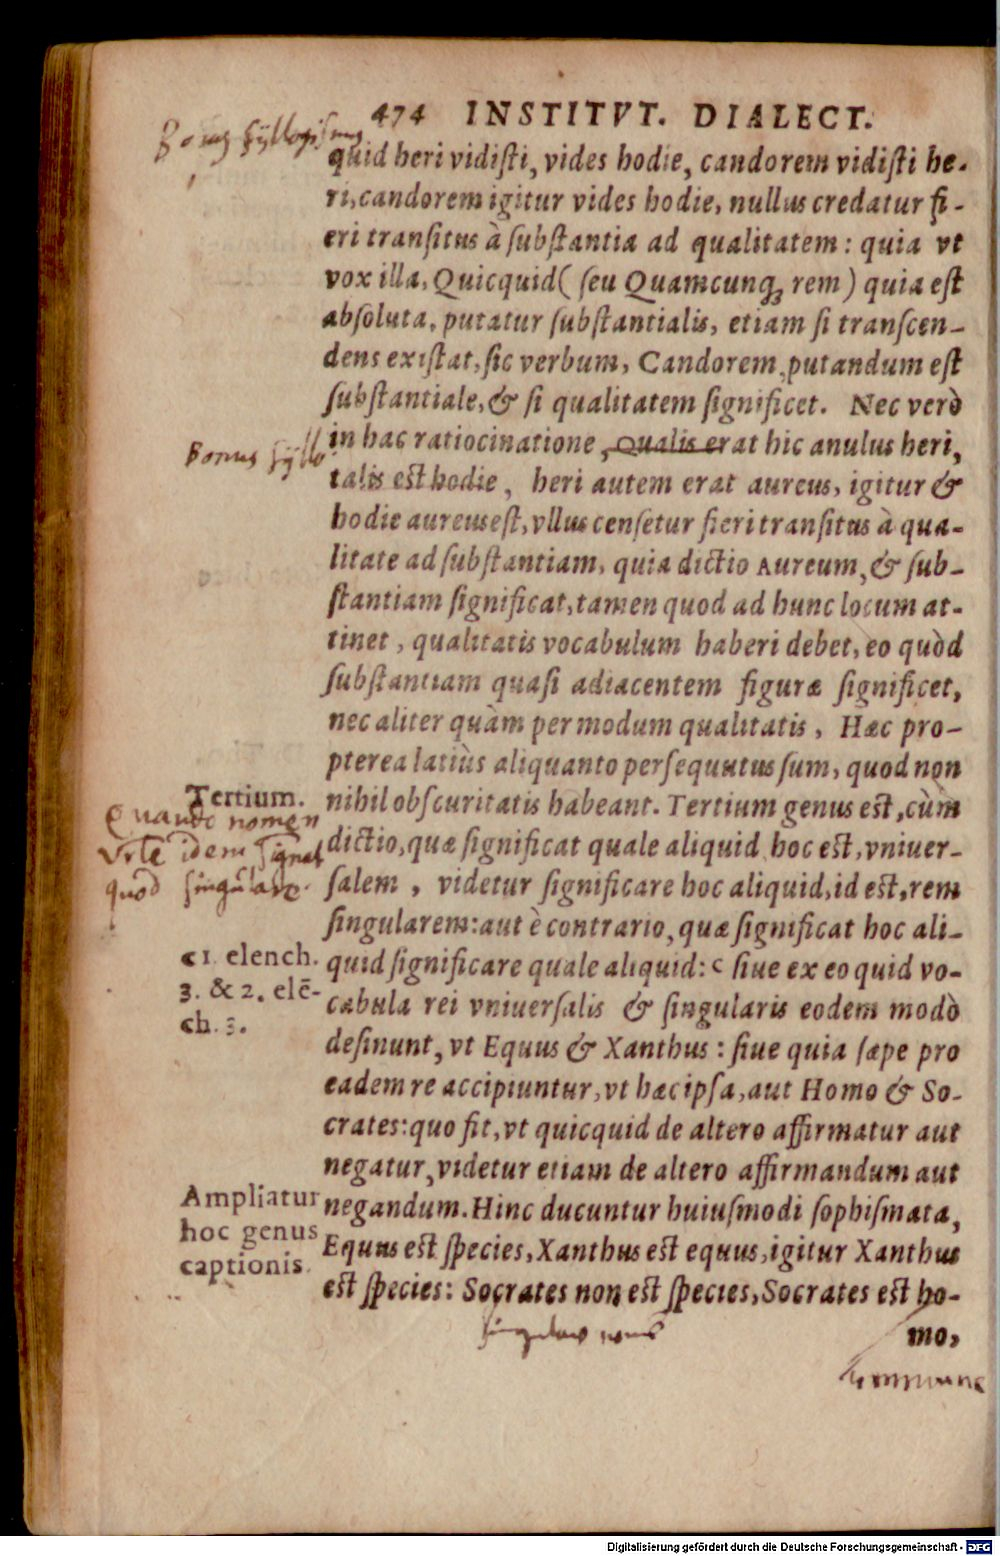 474 INSTITVT. DIALECT.
Bonus syllogismus
quid heri vidisti, vides hodie, candorem vidisti he-
ri, candorem igitur vides hodie, nullus credatur fi-
eri transitus à substantia ad qualitatem: quia vt
vox illa, Quicquid (seu Quamcunq; rem) quia est
absoluta, putatur substantialis, etiam si transcen-
dens existat, sic verbum, Candorem, putandum est
substantiale, & si qualitatem significet. Nec verò
in hac ratiocinatione, Qualis erat hic anulus heri,
Bonus syllo
talis est hodie, heri autem erat aureus, igitur &
hodie aureus est, vllus censetur fieri transitus à qua-
litate ad substantiam, quia dictio Aureum, & sub-
stantiam significat, tamen quod ad hunc locum at-
tinet, qualitatis vocabulum haberi debet, eo quòd
substantiam quasi adiacentem figuræ significet,
nec aliter quàm per modum qualitatis, Hæc pro-
pterea latiùs aliquanto persequutus sum, quod non
Tertium.
nihil obscuritatis habeant. Tertium genus est, cùm
Quando nomen
vrle idem signat
quod singulare.
dictio, quæ significat quale aliquid hoc est, vniuer-
salem, videtur significare hoc aliquid, id est, rem
singularem: aut è contrario, quæ significat hoc ali-
c 1. elench.
3. & 2. elē-
ch. 3.
quid significare quale aliquid: c siue ex eo quid vo-
cabula rei vniuersalis & singularis eodem modò
desinunt, vt Equus & Xanthus: siue quia sæpe pro
eadem re accipiuntur, vt hæc ipsa, aut Homo & So-
crates: quo fit, vt quicquid de altero affirmatur aut
negatur, videtur etiam de altero affirmandum aut
Ampliatur
hoc genus
captionis.
negandum. Hinc ducuntur huiusmodi sophismata,
Equus est species, Xanthus est equus, igitur Xanthus
est species: Socrates non est species, Socrates est ho-
mo,
communne
Digitalisierung gefördert durch die Deutsche Forschungsgemeinschaft - DFG